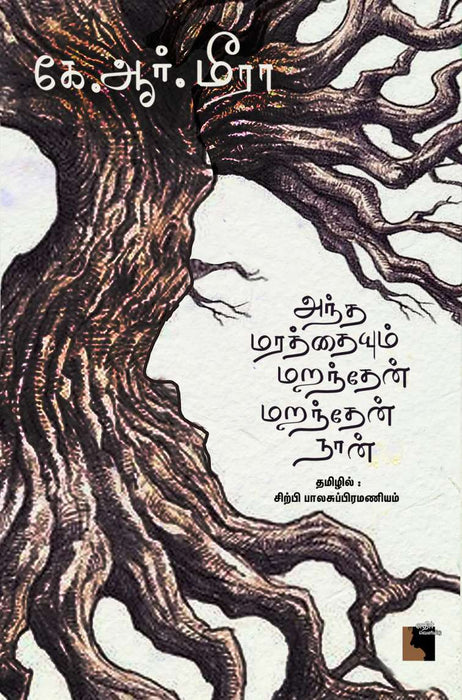 கே.ஆர்.மீரா
அந்த
மரத்தையும்
மறந்தேன்
மறந்தேன்
நான்
தமிழில் :
சிற்பி பாலசுப்பிரமணியம்
எதிர்
வெளியீடு